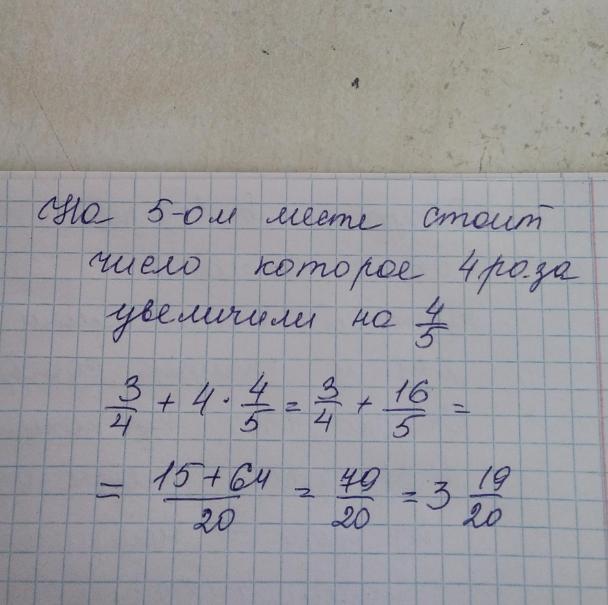 На 5-ом месте стоит
число которое 4 раза
увеличили на 4/5
3/4 + 4 · 4/5 = 3/4 + 16/5 =
= 15+64/20 = 79/20 = 3 19/20